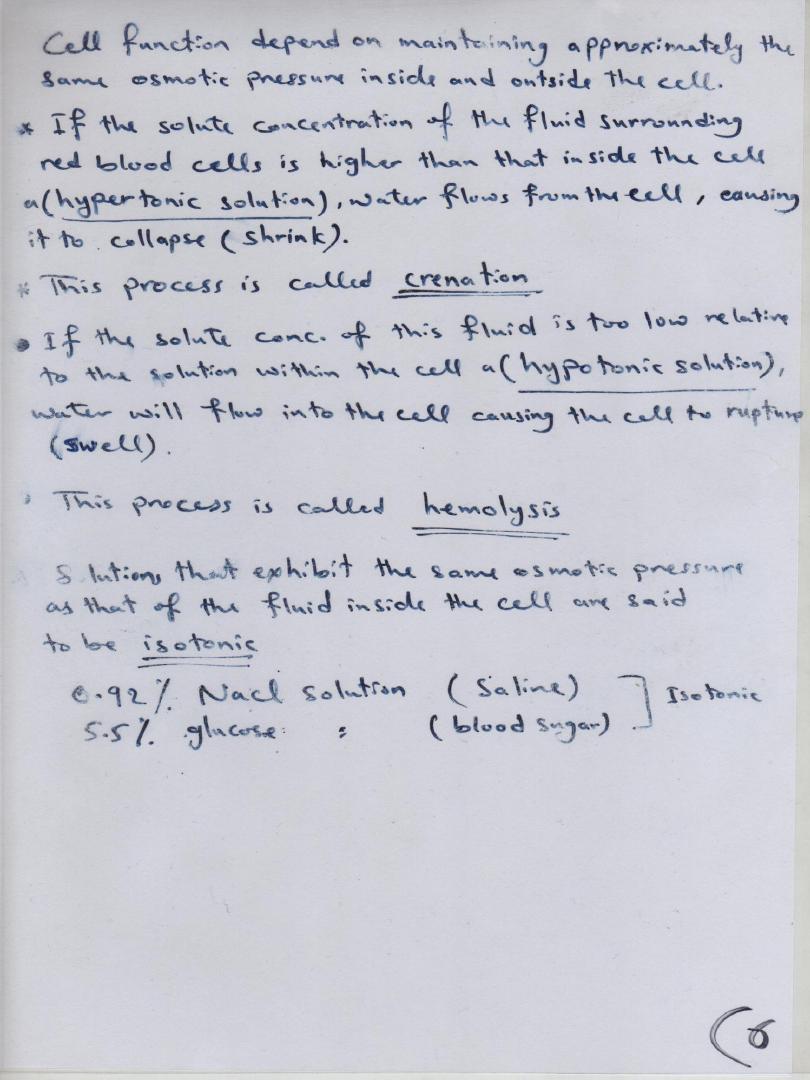 Cell function depend on maintaining approximately the
same osmotic pressure inside and outside the cell.
* If the solute concentration of the fluid surrounding
red blood cells is higher than that inside the cell
a (hypertonic solution), water flows from the cell, causing
it to collapse (shrink).
* This process is called crenation
• If the solute conc. of this fluid is too low relative
to the solution within the cell a (hypotonic solution),
water will flow into the cell causing the cell to rupture
(swell).
• This process is called hemolysis
S lutions that exhibit the same osmotic pressure
as that of the fluid inside the cell are said
to be isotonic
0.92% Nacl solution (Saline) ] Isotonic
5.5% glucose : (blood sugar)
(6